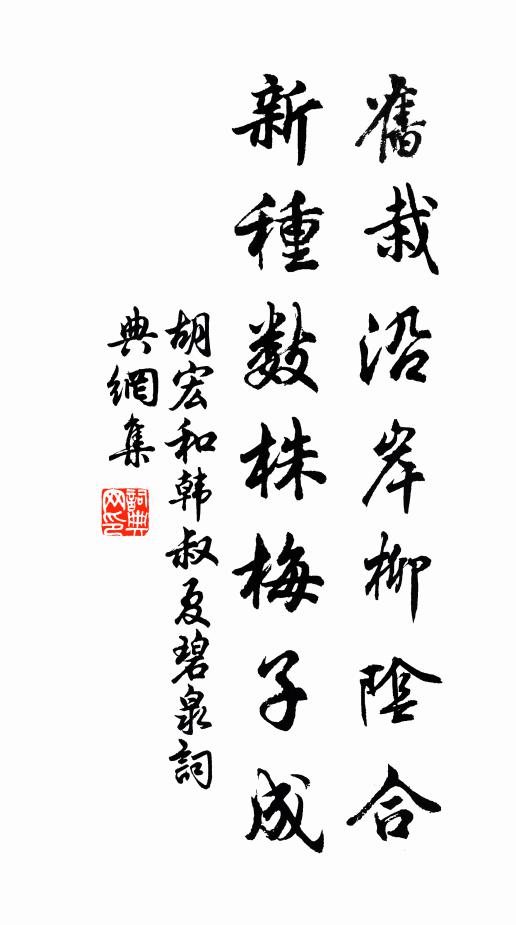 舊栽沿岸柳陰合
新種数株梅子成
胡宏和韩叔夏碧泉詞
典網集
詞典
网印